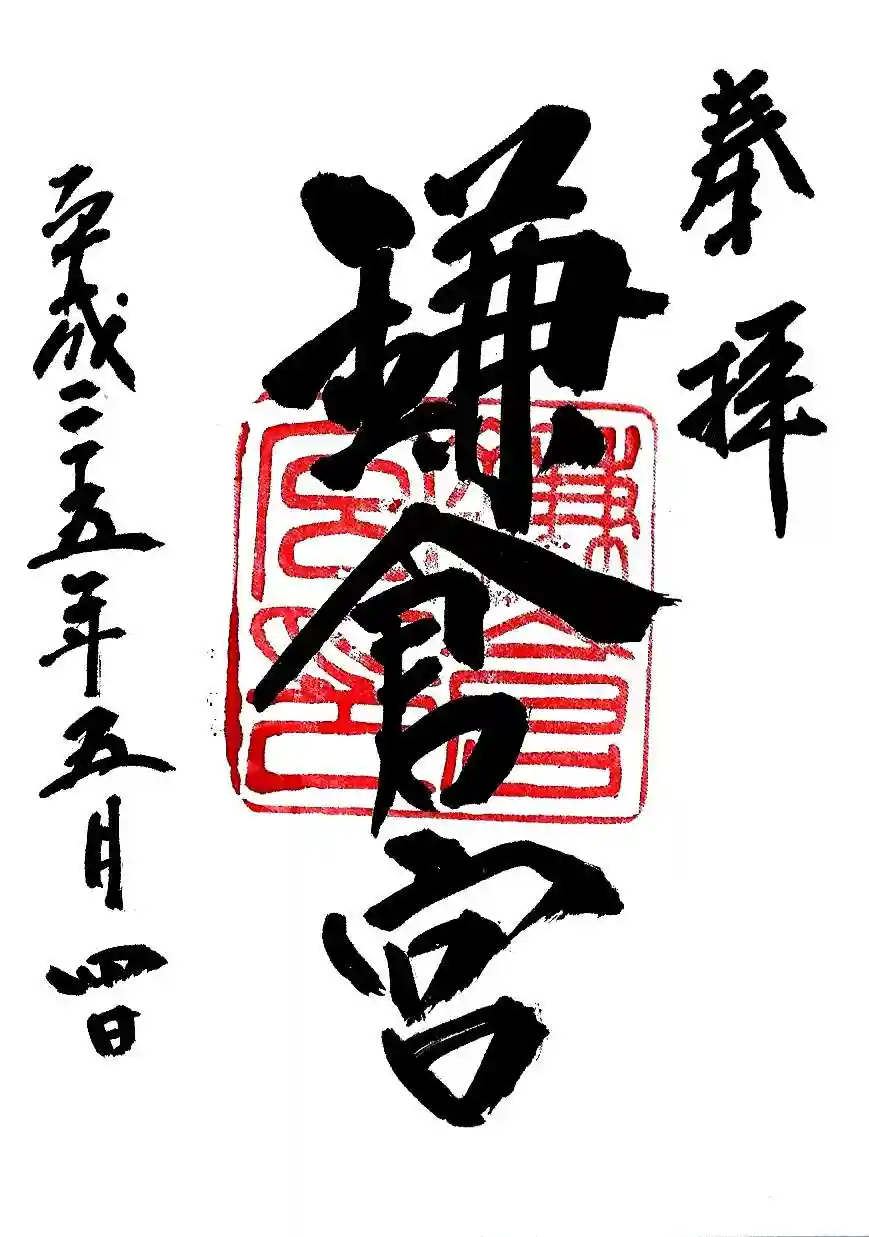 奉拝
鎌倉宮
平成二十五年五月四日
鎌倉宮印